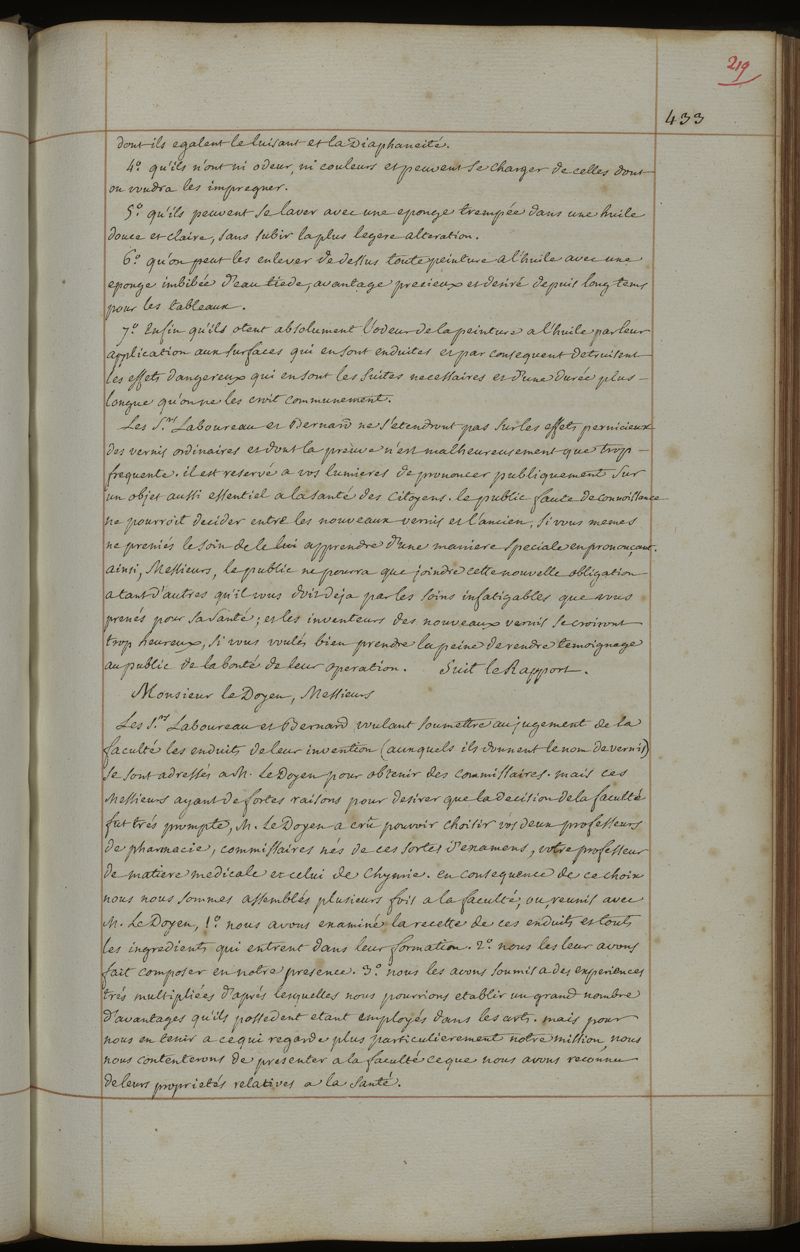 219
433
dont ils egalent le luisant et la Diaphaneité.
4.º qu'ils n'ont ni odeur, ni couleurs et peuvent se charger de celles dont
on voudra les impregner.
5.º qu'ils peuvent se laver avec une eponge trempée dans une huile
douce et claire, sans subir la plus legere alteration.
6.º qu'on peut les enlever de dessus toute peinture a l'huile avec une
eponge imbibée d'eau tiede, avantage precieux et desiré depuis long tems
pour les tableaux.
7.º Enfin qu'ils otent absolument l'odeur de la peinture a l'huile par leur
application aux surfaces qui en sont enduites et par consequent detruisent
les effets dangereux qui en sont les suites necessaires et d'une durée plus-
longue qu'on ne les croit communement.
Les S.rs Laboureau et Bernard ne s'etendront pas sur les effets pernicieux
des vernis ordinaires et dont la preuve n'est malheureusement que trop-
frequente. il est reservé a vos lumieres de prononcer publiquement sur
un objet aussi essentiel a la santé des Citoyens. le public faute de connoissance
ne pourroit decider entre les nouveaux vernis et l'ancien, si vous memes
ne preniés le soin de le lui apprendre d'une maniere speciale en prononçant.
ainsi, Messieurs, le public ne pourra que joindre cette nouvelle obligation
a tant d'autres qu'il vous doit deja par les soins infatigables que vous
prenés pour sa santé; et les inventeurs des nouveaux vernis se croiront
trop heureux, si vous voulés bien prendre la peine de rendre temoignage
au public de la bonté de leur operation. Suit le Rapport.
Monsieur le Doyen, Messieurs
Les S.rs Laboureau et Bernard voulant soumettre au jugement de la
faculté les enduits de leur invention (auxquels ils donnent le nom de vernis)
se sont adressés a M. Le Doyen pour obtenir des commissaires. mais ces
Messieurs ayant de fortes raisons pour desirer que la decision de la faculté
fut trés prompte, M. Le Doyen a crû pouvoir choisir vos deux professeurs
de pharmacie, commissaires nés de ces sortes d'examens, votre professeur
de matiere medicale et celui de Chymie. en consequence de ce choix
nous nous sommes assemblés plusieurs fois a la faculté, ou, reunis avec
M. Le Doyen, 1.º nous avons examiné la recette de ces enduits et touts
les ingredients qui entrent dans leur formation. 2.º nous les leur avons
fait composer en notre presence. 3.º nous les avons soumis a des experiences
trés multipliées d'aprés lesquelles nous pourrions etablir un grand nombre
d'avantages qu'ils possedent etant employés dans les arts. mais pour
nous en tenir a ce qui regarde plus particulierement notre mission, nous
nous contenterons de presenter a la faculté ce que nous avons reconnu
de leurs proprietés relatives a la santé.